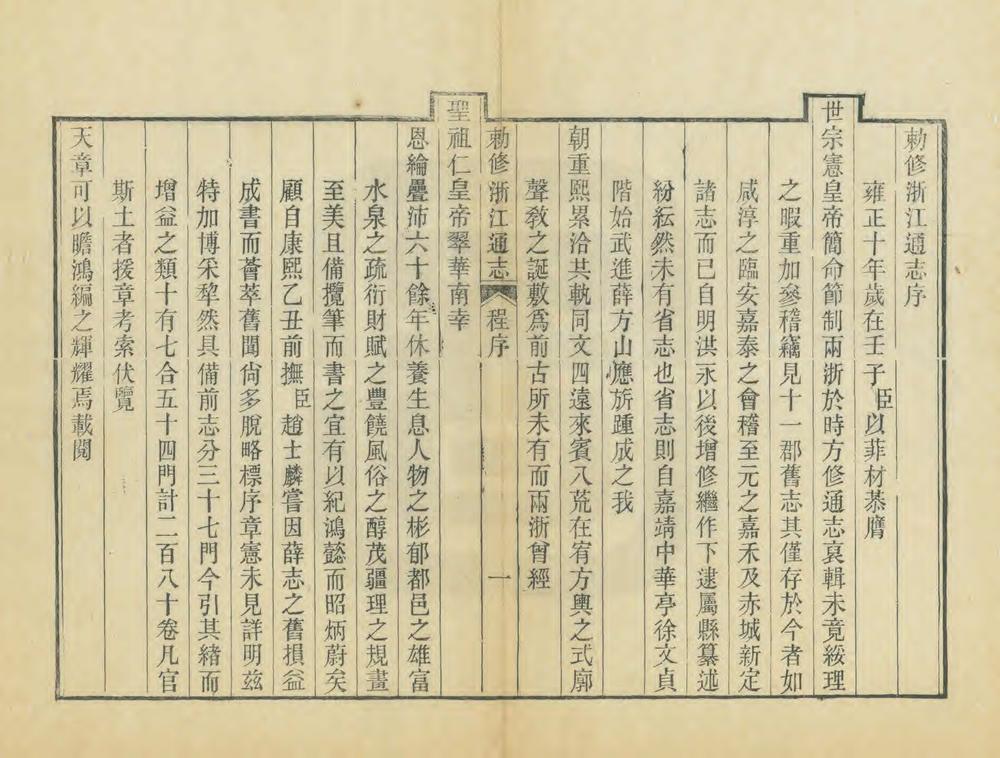 勅修浙江通志序
雍正十年歲在壬子臣以菲材恭膺
世宗憲皇帝簡命節制兩浙於時方修通志裒輯未竟綏理
之暇重加參稽竊見十一郡舊志其僅存於今者如
咸淳之臨安嘉泰之會稽至元之嘉禾及赤城新定
諸志而已自明洪永以後增修繼作下逮屬縣纂述
紛紜然未有省志也省志則自嘉靖中華亭徐文貞
階始武進薛方山應旂踵成之我
朝重熙累洽共軌同文四遠來賓八荒在宥方輿之式廓
聲敎之誕敷爲前古所未有而兩浙曾經
勅修浙江通志 程序 一
聖祖仁皇帝翠華南幸
恩綸疊沛六十餘年休養生息人物之彬郁都邑之雄富
水泉之疏衍財賦之豐饒風俗之醇茂疆理之規畫
至美且備攬筆而書之宜有以紀鴻懿而昭炳蔚矣
顧自康熙乙丑前撫臣趙士麟嘗因薛志之舊損益
成書而薈萃舊聞尙多脫略標序章憲未見詳明茲
特加博采犂然具備前志分三十七門今引其緒而
增益之類十有七合五十四門計二百八十卷凡官
斯土者援章考索伏覽
天章可以瞻鴻編之輝耀焉載閱